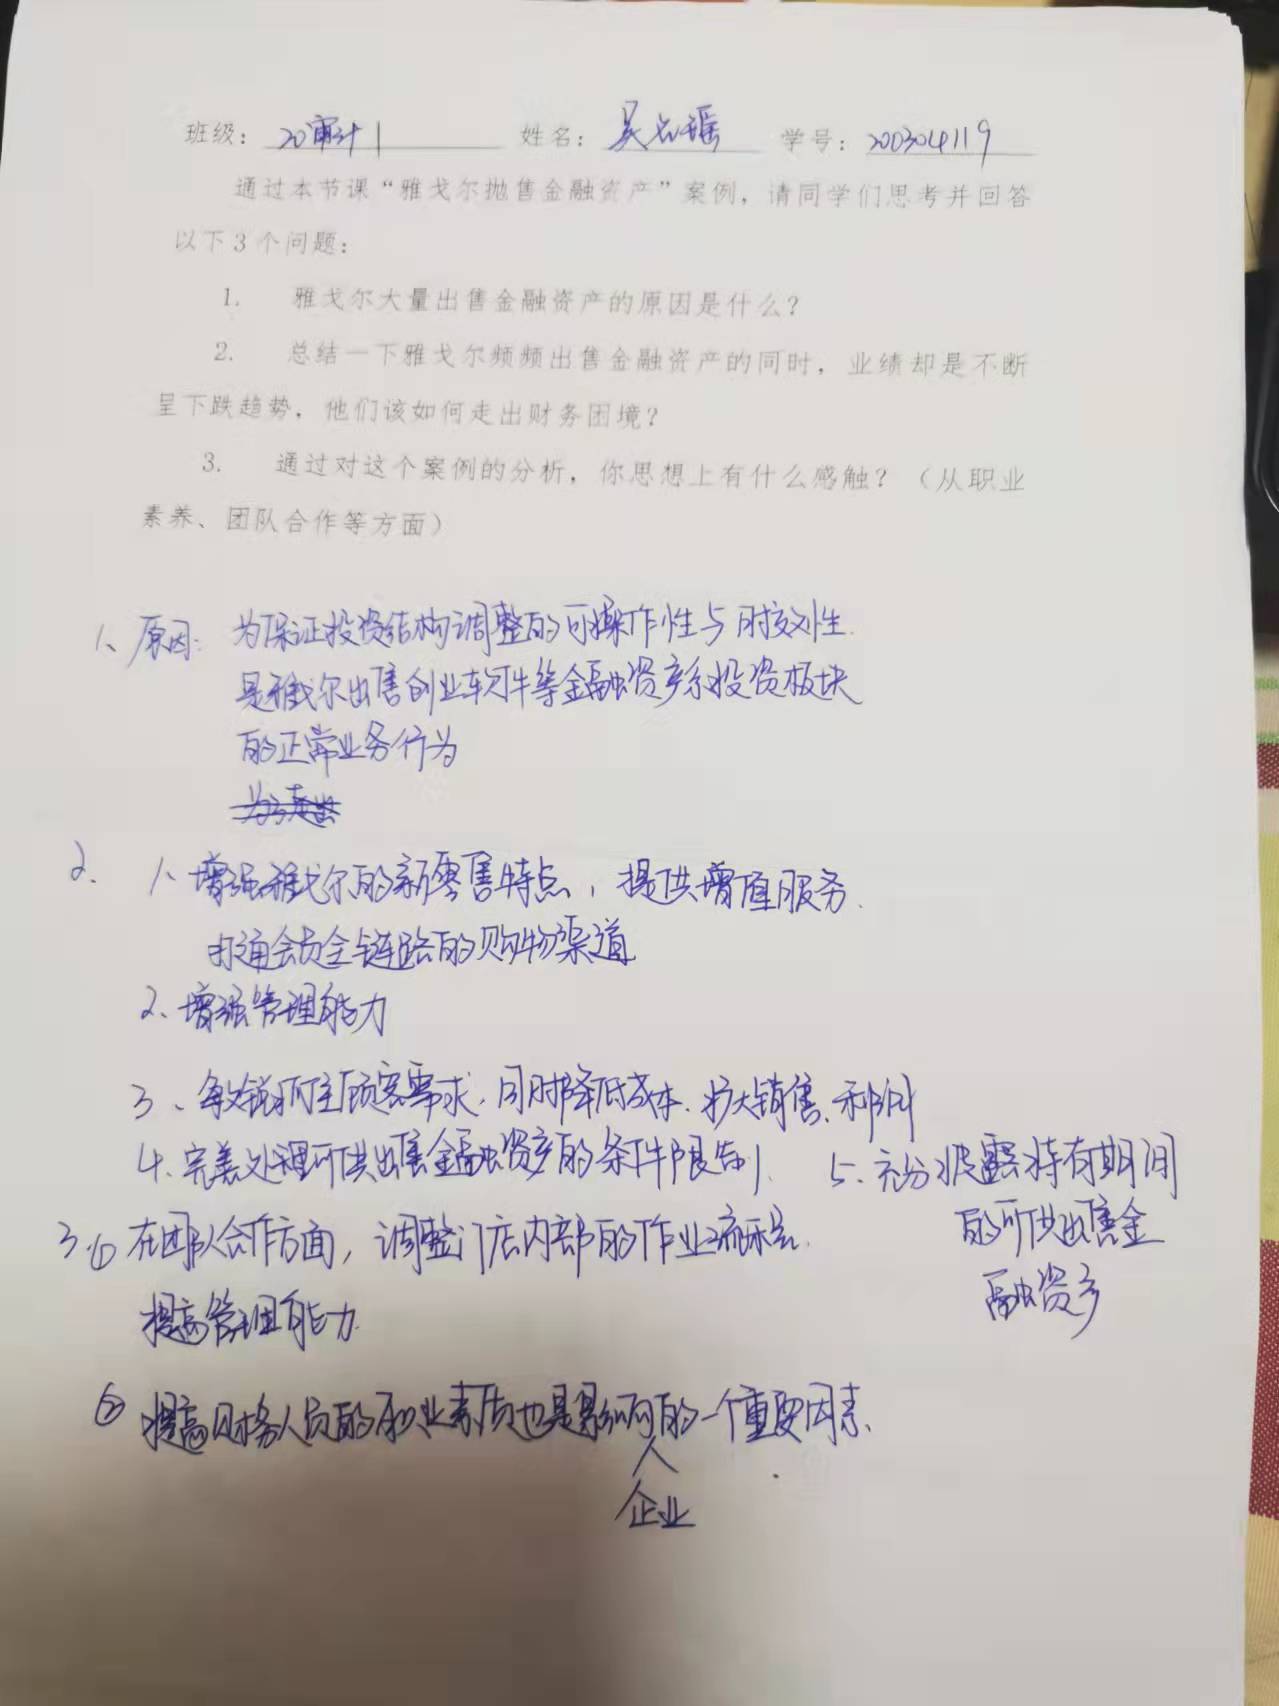 班级：20审计1 姓名：吴 瑶 学号：200304119
通过本节课“雅戈尔抛售金融资产”案例，请同学们思考并回答
以下3个问题：
1. 雅戈尔大量出售金融资产的原因是什么？
2. 总结一下雅戈尔频频出售金融资产的同时，业绩却是不断
呈下跌趋势，他们该如何走出财务困境？
3. 通过对这个案例的分析，你思想上有什么感触？（从职业
素养、团队合作等方面）
1、原因：为保证投资结构调整的可操作性与时效性.
是雅戈尔出售创业软件等金融资产系投资板块
的正常业务行为
2. 1、增强雅戈尔的新零售特点，提供增值服务.
打通会员全链路的购物渠道
2、增强管理能力
3、敏锐抓住顾客需求，同时降低成本、扩大销售、利润
4、完善处理可供出售金融资产的条件限制.
5、充分披露持有期间
的可供出售金
融资产
3 ① 在团队合作方面，调整门店内部的作业流程.
提高管理能力.
② 提高财务人员的职业素质也是影响的一个重要因素.
企业